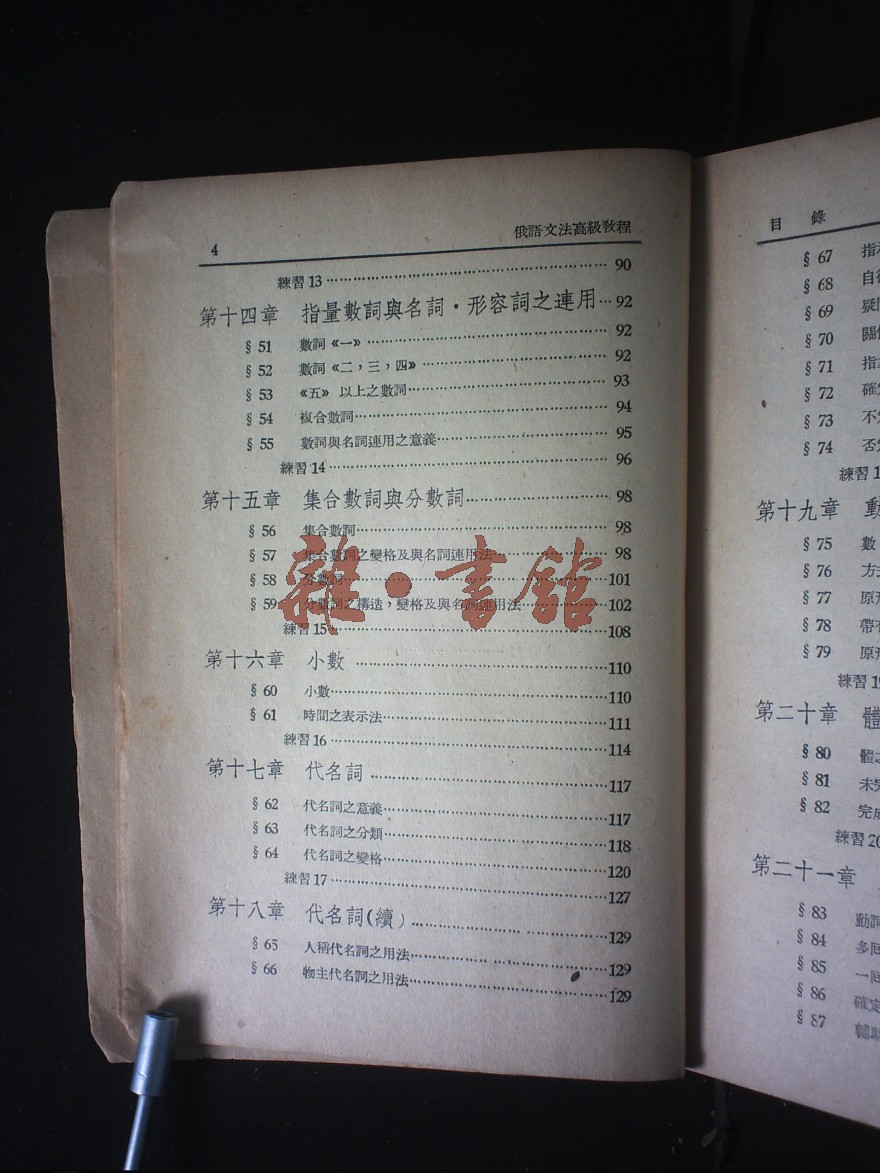 4 俄語文法高級教程
練習13 90
第十四章 指量數詞與名詞·形容詞之連用 92
§ 51 數詞《一》 92
§ 52 數詞《二，三，四》 92
§ 53 《五》以上之數詞 93
§ 54 複合數詞 94
§ 55 數詞與名詞連用之意義 95
練習14 96
第十五章 集合數詞與分數詞 98
§ 56 集合數詞 98
§ 57 集合數詞之變格及與名詞連用法 98
§ 58 分數詞 101
§ 59 分數詞之構造，變格及與名詞連用法 102
練習15 108
第十六章 小數 110
§ 60 小數 110
§ 61 時間之表示法 111
練習16 114
第十七章 代名詞 117
§ 62 代名詞之意義 117
§ 63 代名詞之分類 118
§ 64 代名詞之變格 120
練習17 127
第十八章 代名詞(續) 129
§ 65 人稱代名詞之用法 129
§ 66 物主代名詞之用法 129
雜·書館
目錄
§ 67 指
§ 68 自
§ 69 疑
§ 70 關
§ 71 指
§ 72 確
§ 73 不
§ 74 否
練習1
第十九章 動
§ 75 數
§ 76 方
§ 77 原
§ 78 帶
§ 79 原
練習19
第二十章 體
§ 80 體之
§ 81 未完
§ 82 完成
練習20
第二十一章
§ 83 動詞
§ 84 多
§ 85 一
§ 86 確定
§ 87 輔助